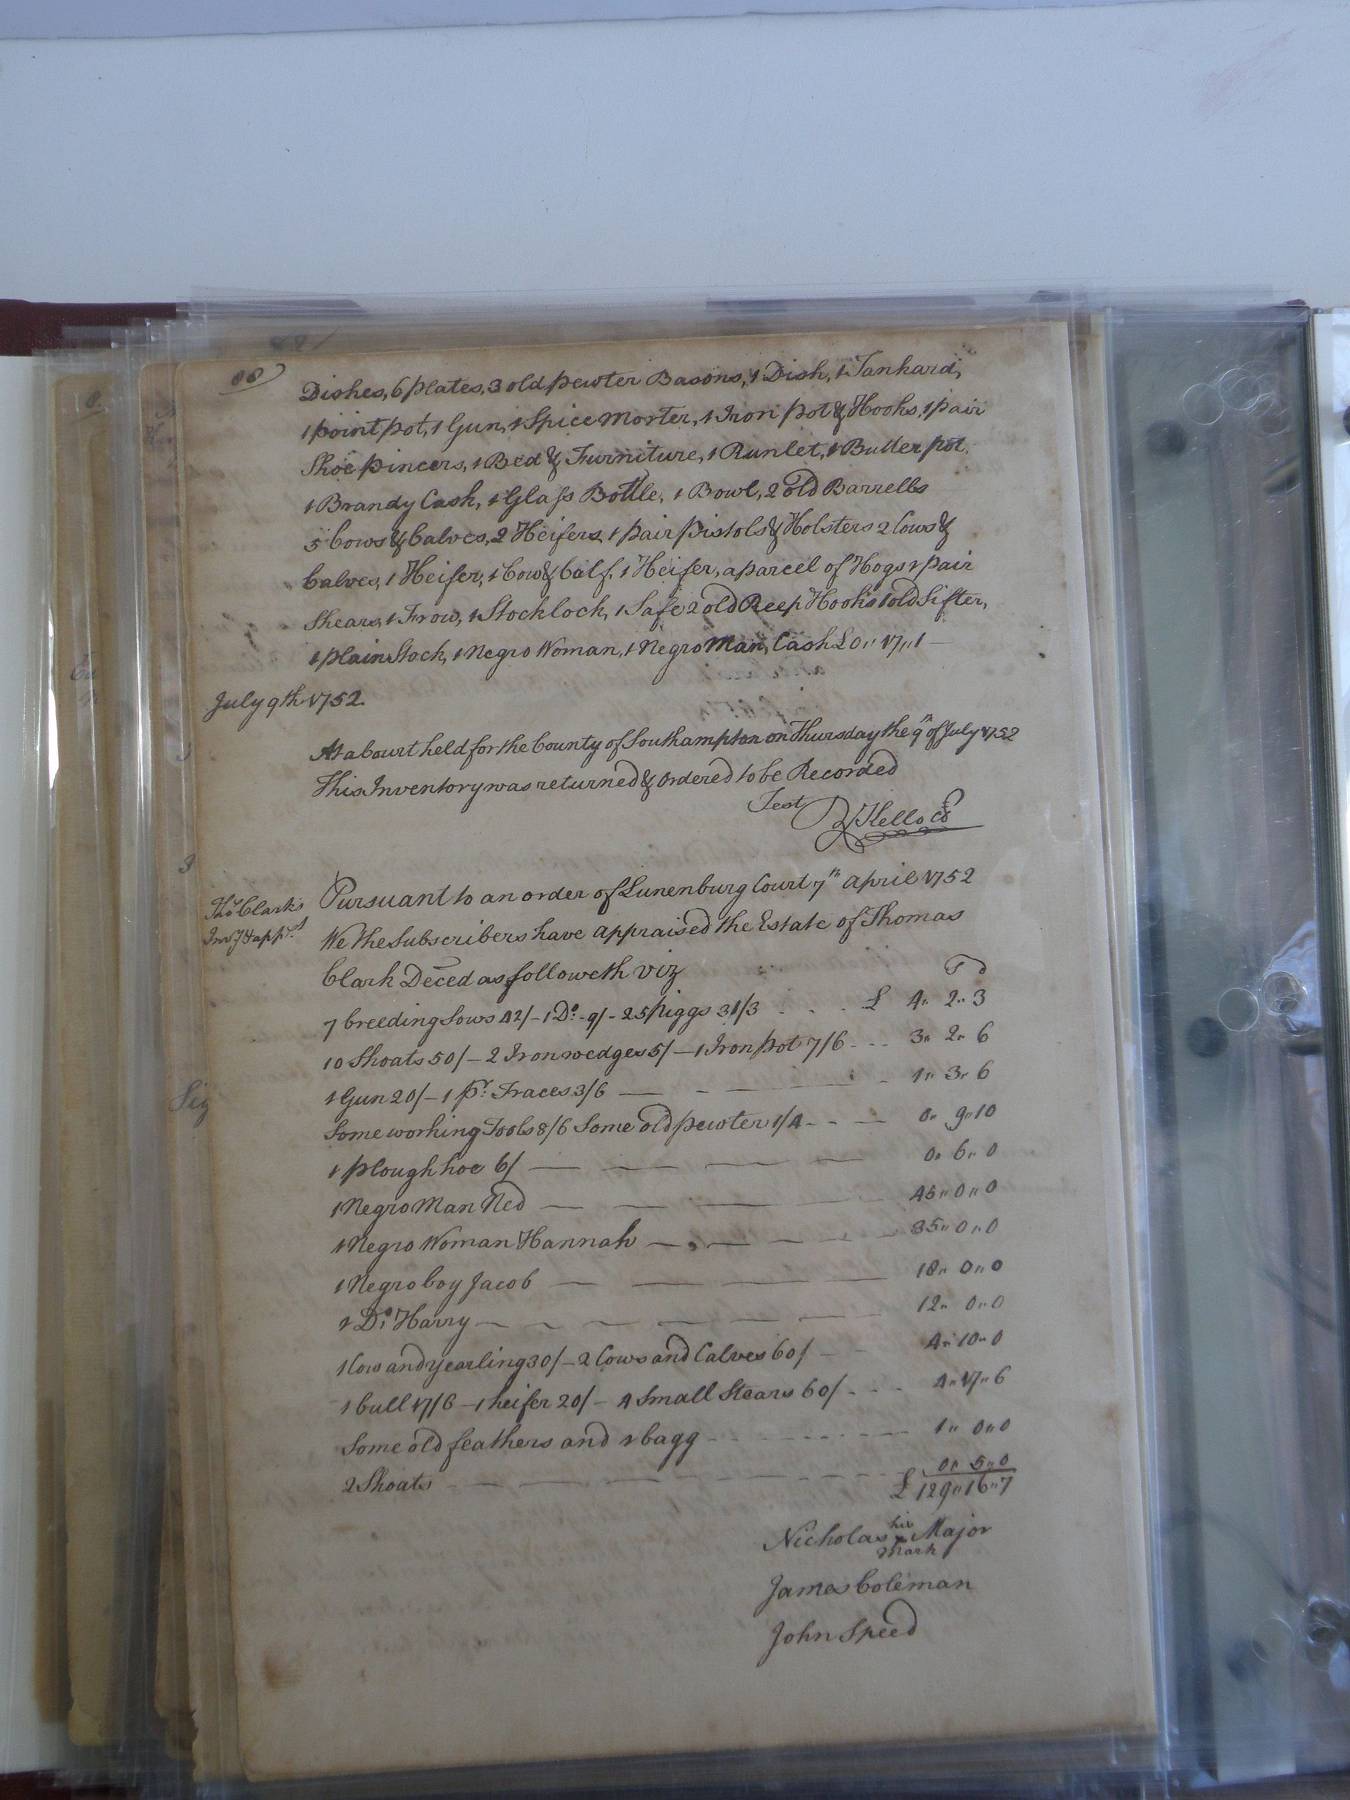 88)
Dishes, 6 plates, 3 old pewter Basons, 1 Dish, 1 Tankard,
1 point pot, 1 Gun, 1 Spice Morter, 1 Iron pot & Hooks, 1 pair
Shoe pincers, 1 Bed & Furniture, 1 Runlet, 1 Butter pot,
1 Brandy Cask, 1 Glass Bottle, 1 Bowl, 2 old Barrells
5 Cows & Calves, 2 Heifers, 1 pair pistols & Holsters 2 Cows &
Calves, 1 Heifer, 1 Cow & Calf, 1 Heifer, a parcel of Hogs 1 pair
Shears, 1 Frow, 1 Stocklock, 1 Safe 2 old Reep Hooks 1 old Sifter,
1 plain Stock, 1 Negro Woman, 1 Negro Man, Cash £0,, 17,, 1 —
July 9th 1752.
At a Court held for the County of Southampton on Thursday the 9th of July 1752
This Inventory was returned & ordered to be Recorded
Test
Thos Clark's
Inv.y & app.mt
Pursuant to an order of Lunenburg Court 7th April 1752
We the Subscribers have appraised the Estate of Thomas
Clark Deced as followeth viz
7 breeding Sows 42/ – 1 Do. 9/ – 25 piggs 31/3 - - - £ 4,, 2,, 3
10 Shoats 50/ – 2 Iron wedges 5/ – 1 Iron pot 7/6 - - - 3,, 2,, 6
1 Gun 20/ – 1 pr. Traces 3/6 — - — - 1,, 3,, 6
Some working Tools 8/6 Some old pewter 1/4 - - — 0,, 9,, 10
1 plough hoe 6/ — — — — 0,, 6,, 0
1 Negro Man Ned — — — — 45,, 0,, 0
1 Negro Woman Hannah — — — - - 35,, 0,, 0
1 Negro boy Jacob — — — 18,, 0,, 0
1 Do. Harry — — — — — — 12,, 0,, 0
1 Cow and yearling 30/ – 2 Cows and Calves 60/ — - 4,, 10,, 0
1 bull 17/6 – 1 heifer 20/ – 4 Small Stears 60/ - - - 4,, 17,, 6
Some old feathers and 1 bagg - - - - - - 1,, 0,, 0
2 Shoats - — — — — - - - 0,, 5,, 0
£ 129,, 16,, 7
Nicholas his x mark Major
James Coleman
John Speed